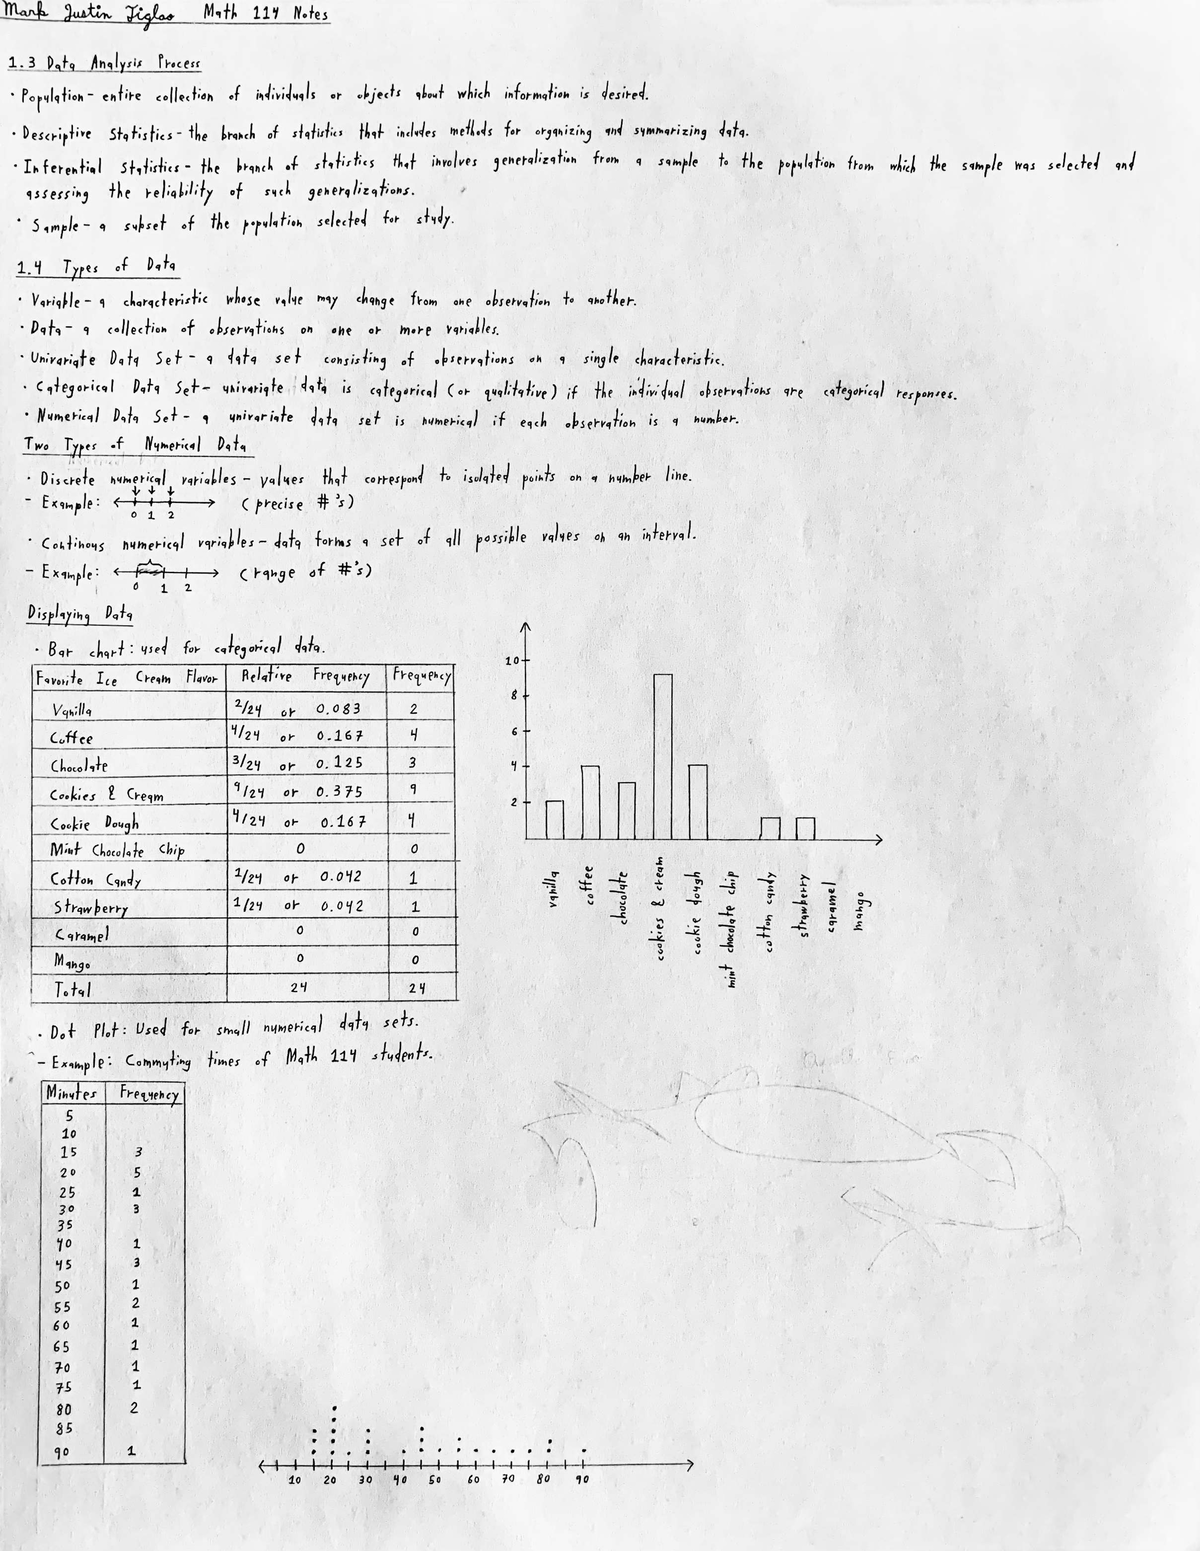 Mark Justin Tiglao Math 114 Notes
1.3 Data Analysis Process
· Population - entire collection of individuals or objects about which information is desired.
· Descriptive Statistics - the branch of statistics that includes methods for organizing and summarizing data.
· Inferential Statistics - the branch of statistics that involves generalization from a sample to the population from which the sample was selected and
assessing the reliability of such generalizations.
· Sample - a subset of the population selected for study.
1.4 Types of Data
· Variable - a characteristic whose value may change from one observation to another.
· Data - a collection of observations on one or more variables.
· Univariate Data Set - a data set consisting of observations on a single characteristic.
· Categorical Data Set - univariate data is categorical (or qualitative) if the individual observations are categorical responses.
· Numerical Data Set - a univariate data set is numerical if each observation is a number.
Two Types of Numerical Data
· Discrete numerical variables - values that correspond to isolated points on a number line.
- Example: (precise #'s)
0 1 2
· Continous numerical variables - data forms a set of all possible values on an interval.
- Example: (range of #'s)
0 1 2
Displaying Data
· Bar chart: used for categorical data.
Favorite Ice Cream Flavor Relative Frequency Frequency
Vanilla 2/24 or 0.083 2
Coffee 4/24 or 0.167 4
Chocolate 3/24 or 0.125 3
Cookies & Cream 9/24 or 0.375 9
Cookie Dough 4/24 or 0.167 4
Mint Chocolate Chip 0 0
Cotton Candy 1/24 or 0.042 1
Strawberry 1/24 or 0.042 1
Caramel 0 0
Mango 0 0
Total 24 24
10
8
6
4
2
vanilla
coffee
chocolate
cookies & cream
cookie dough
mint chocolate chip
cotton candy
strawberry
caramel
mango
· Dot Plot: Used for small numerical data sets.
- Example: Commuting times of Math 114 students.
Minutes Frequency
5
10
15 3
20 5
25 1
30 3
35
40 1
45 3
50 1
55 2
60 1
65 1
70 1
75 1
80 2
85
90 1
10 20 30 40 50 60 70 80 90